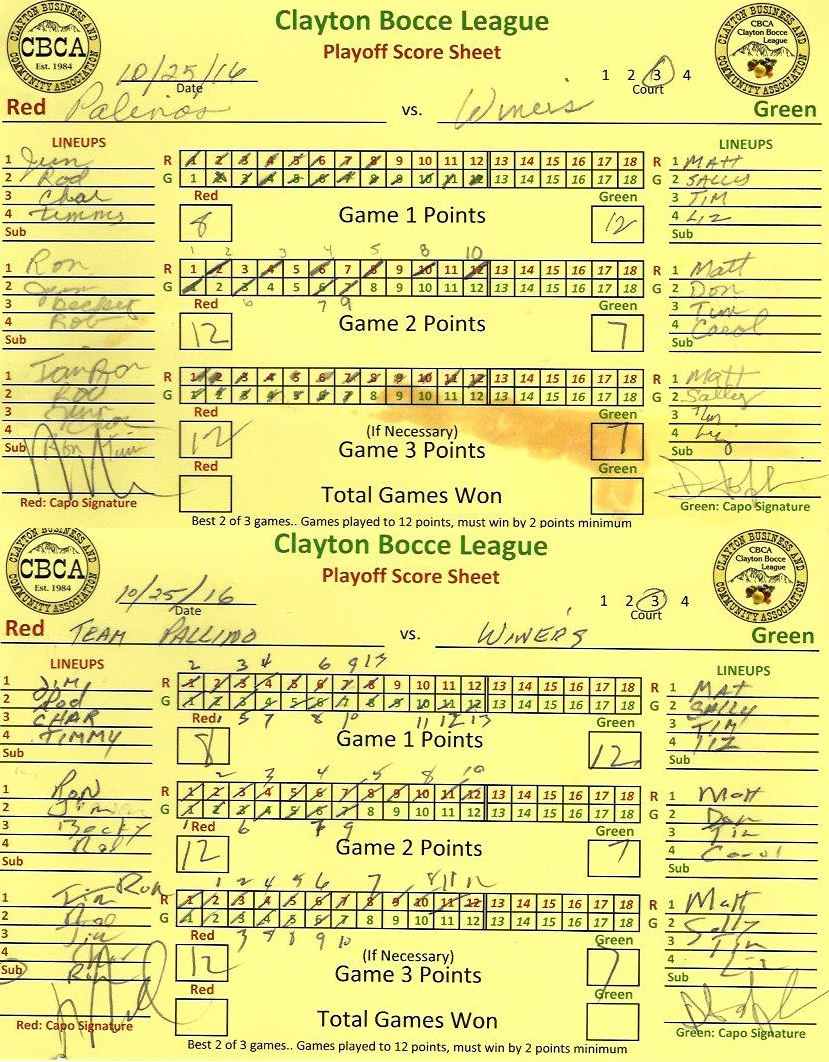 Clayton Bocce League
Playoff Score Sheet
CLAYTON BUSINESS AND COMMUNITY ASSOCIATION
CBCA
Est. 1984
CLAYTON BUSINESS AND COMMUNITY ASSOCIATION
CBCA
Clayton Bocce League
10/25/16
Date
1 2 3 4
Court
Red
vs. Winer's
Green
LINEUPS
LINEUPS
R 1 2 3 4 5 6 7 8 9 10 11 12 13 14 15 16 17 18 R
G 1 2 3 4 5 6 7 8 9 10 11 12 13 14 15 16 17 18 G
1 Jim
2 Rod
3 Char
4 Timmy
Sub
1 MATT
2 SALLY
3 TIM
4 LIZ
Sub
Red
Green
8 Game 1 Points 12
1 2 3 4 5 8 10
R 1 2 3 4 5 6 7 8 9 10 11 12 13 14 15 16 17 18 R
G 1 2 3 4 5 6 7 8 9 10 11 12 13 14 15 16 17 18 G
6 7 9
1 Ron
2
3
4 Rob
Sub
1 Matt
2 Don
3 Tim
4 Carol
Sub
Red
Green
12 Game 2 Points 7
R 1 2 3 4 5 6 7 8 9 10 11 12 13 14 15 16 17 18 R
G 1 2 3 4 5 6 7 8 9 10 11 12 13 14 15 16 17 18 G
1
2 Rod
3
4
Sub
1 Matt
2 Sally
3 Tim
4 Liz
Sub
Red
Green
(If Necessary)
12 Game 3 Points 7
Red
Green
Total Games Won
Red: Capo Signature
Green: Capo Signature
Best 2 of 3 games.. Games played to 12 points, must win by 2 points minimum
Clayton Bocce League
Playoff Score Sheet
CLAYTON BUSINESS AND COMMUNITY ASSOCIATION
CBCA
Est. 1984
CLAYTON BUSINESS AND COMMUNITY ASSOCIATION
CBCA
Clayton Bocce League
10/25/16
Date
1 2 3 4
Court
Red TEAM PALLINO vs. WINER'S Green
LINEUPS
LINEUPS
2 3 4 6 9 13
R 1 2 3 4 5 6 7 8 9 10 11 12 13 14 15 16 17 18 R
G 1 2 3 4 5 6 7 8 9 10 11 12 13 14 15 16 17 18 G
1 5 7 8 10 11 12 13
1 JIM
2 Rod
3 CHAR
4 TIMMY
Sub
1 MAT
2 SALLY
3 TIM
4 LIZ
Sub
Red
Green
8 Game 1 Points 12
2 3 4 5 8 10
R 1 2 3 4 5 6 7 8 9 10 11 12 13 14 15 16 17 18 R
G 1 2 3 4 5 6 7 8 9 10 11 12 13 14 15 16 17 18 G
1 6 7 9
1 Ron
2 Jim
3 Becky
4
Sub
1 Matt
2 Don
3 Tim
4 Carol
Sub
Red
Green
12 Game 2 Points 7
1 2 4 5 6 7 8 11 12
R 1 2 3 4 5 6 7 8 9 10 11 12 13 14 15 16 17 18 R
G 1 2 3 4 5 6 7 8 9 10 11 12 13 14 15 16 17 18 G
3 4 8 9 10
1 Ron
2
3 Jim
4
Sub Ron
1 Matt
2 Sally
3 Tim
4 Liz
Sub
Red
Green
(If Necessary)
12 Game 3 Points 7
Red
Green
Total Games Won
Red: Capo Signature
Green: Capo Signature
Best 2 of 3 games.. Games played to 12 points, must win by 2 points minimum